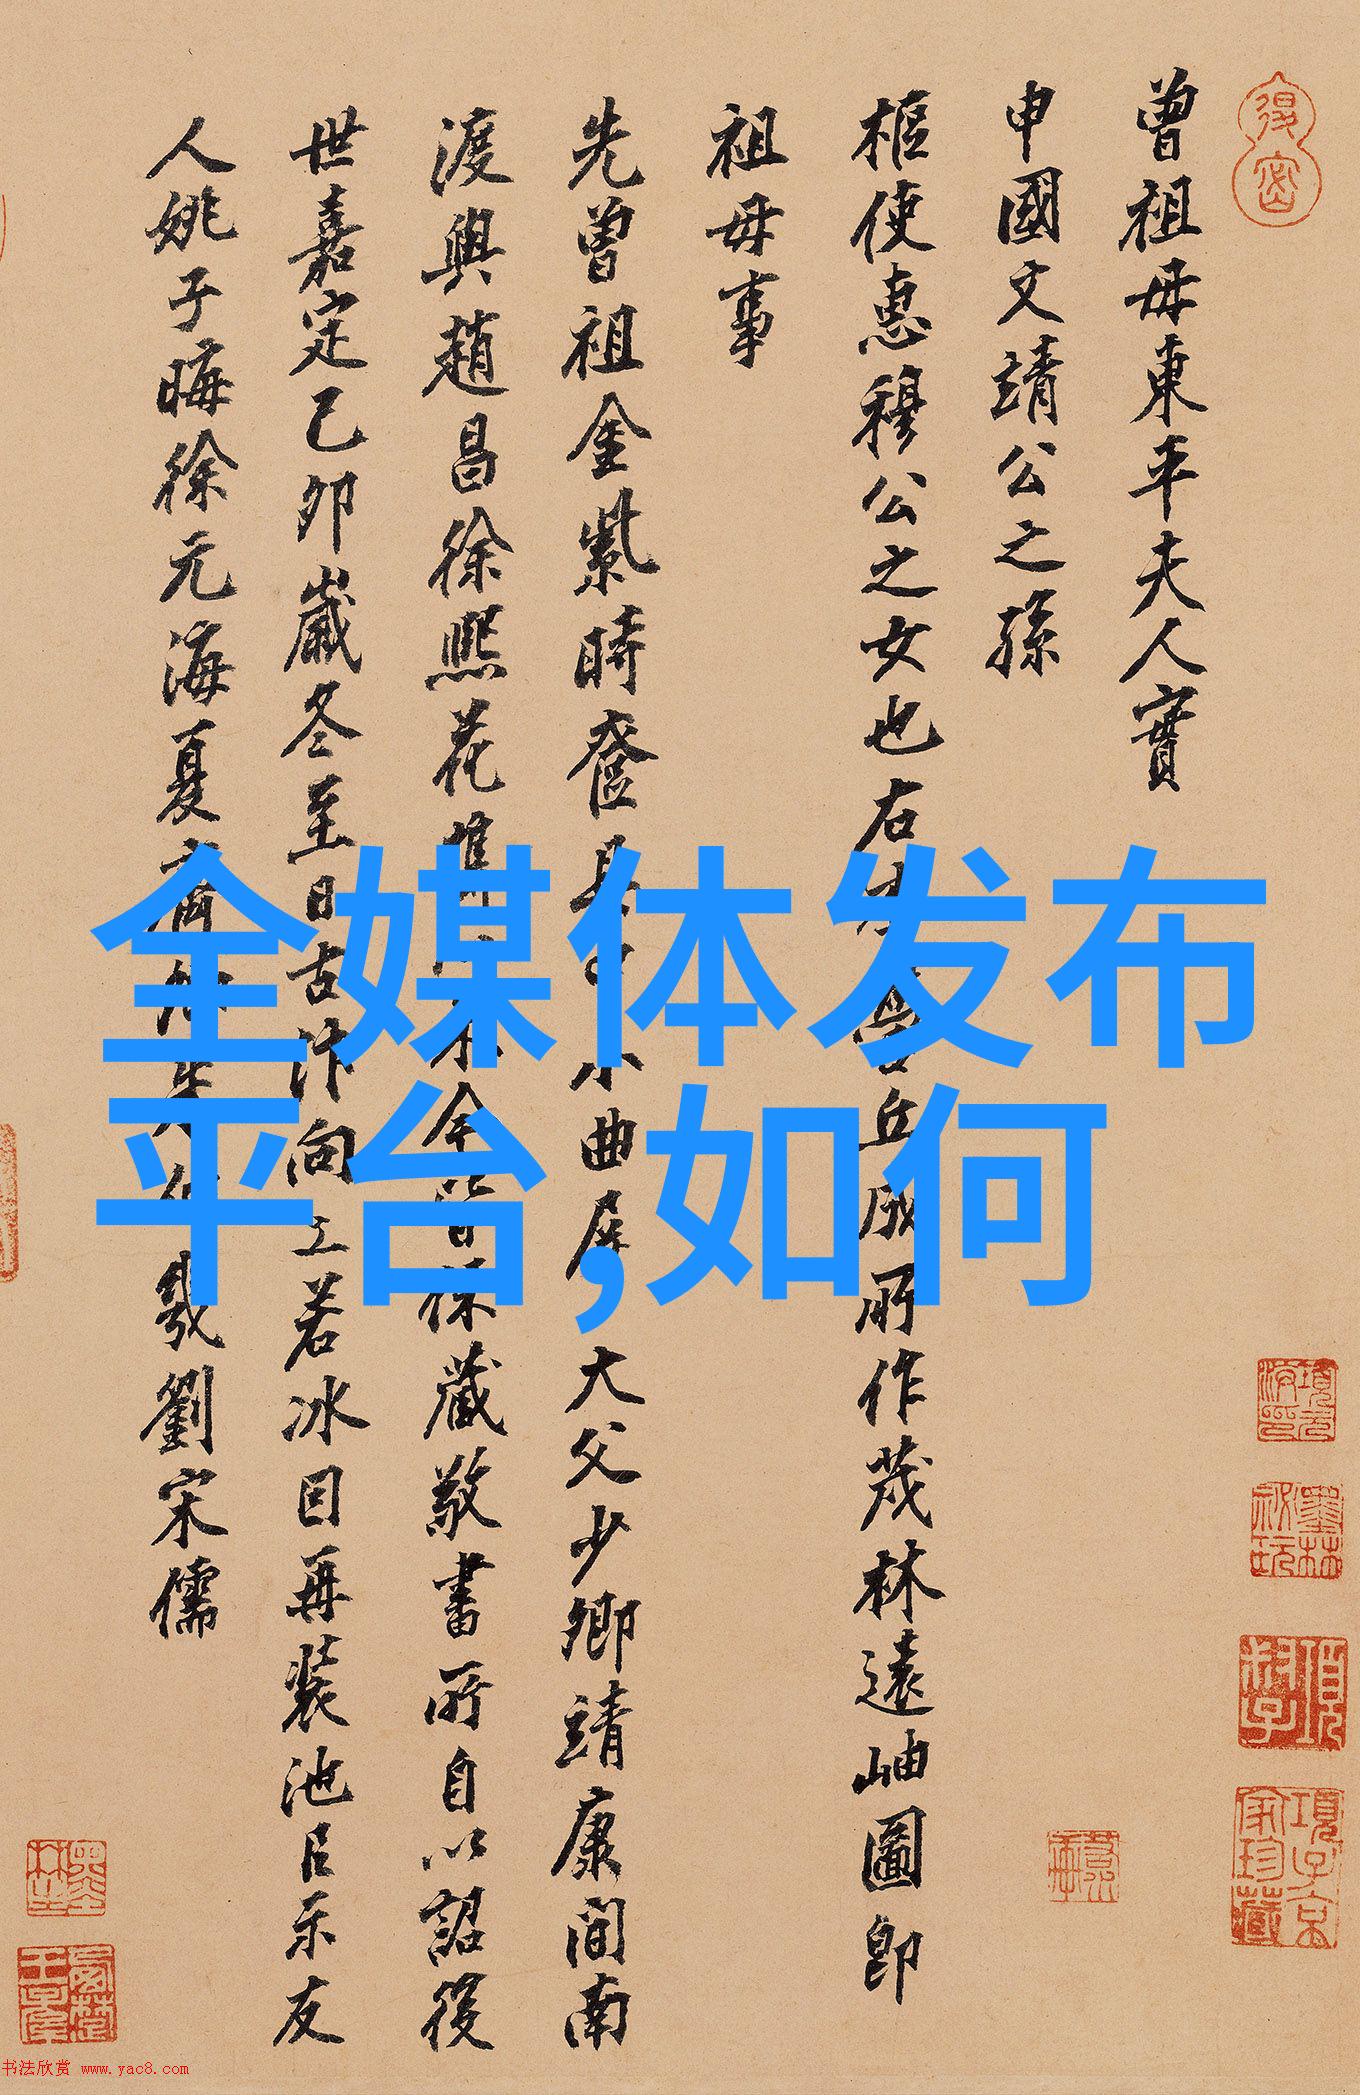 曾祖母東平夫人寶
申國文靖公之孫
樞使惠穆公之女也右丞
丘成所作茂林遠岫圖即
祖母事
先曾祖金紫時奩具中
小曲屏大父少卿靖康間南
渡與趙昌徐熙花
今皆保藏敬書所自以詔後
世嘉定己卯歲冬至日古汴向工若冰因再裝池呂示友
人姚子晦徐元海夏
劉宋儒
全媒体发布
平台,如何
书法欣赏 www.yac8.com